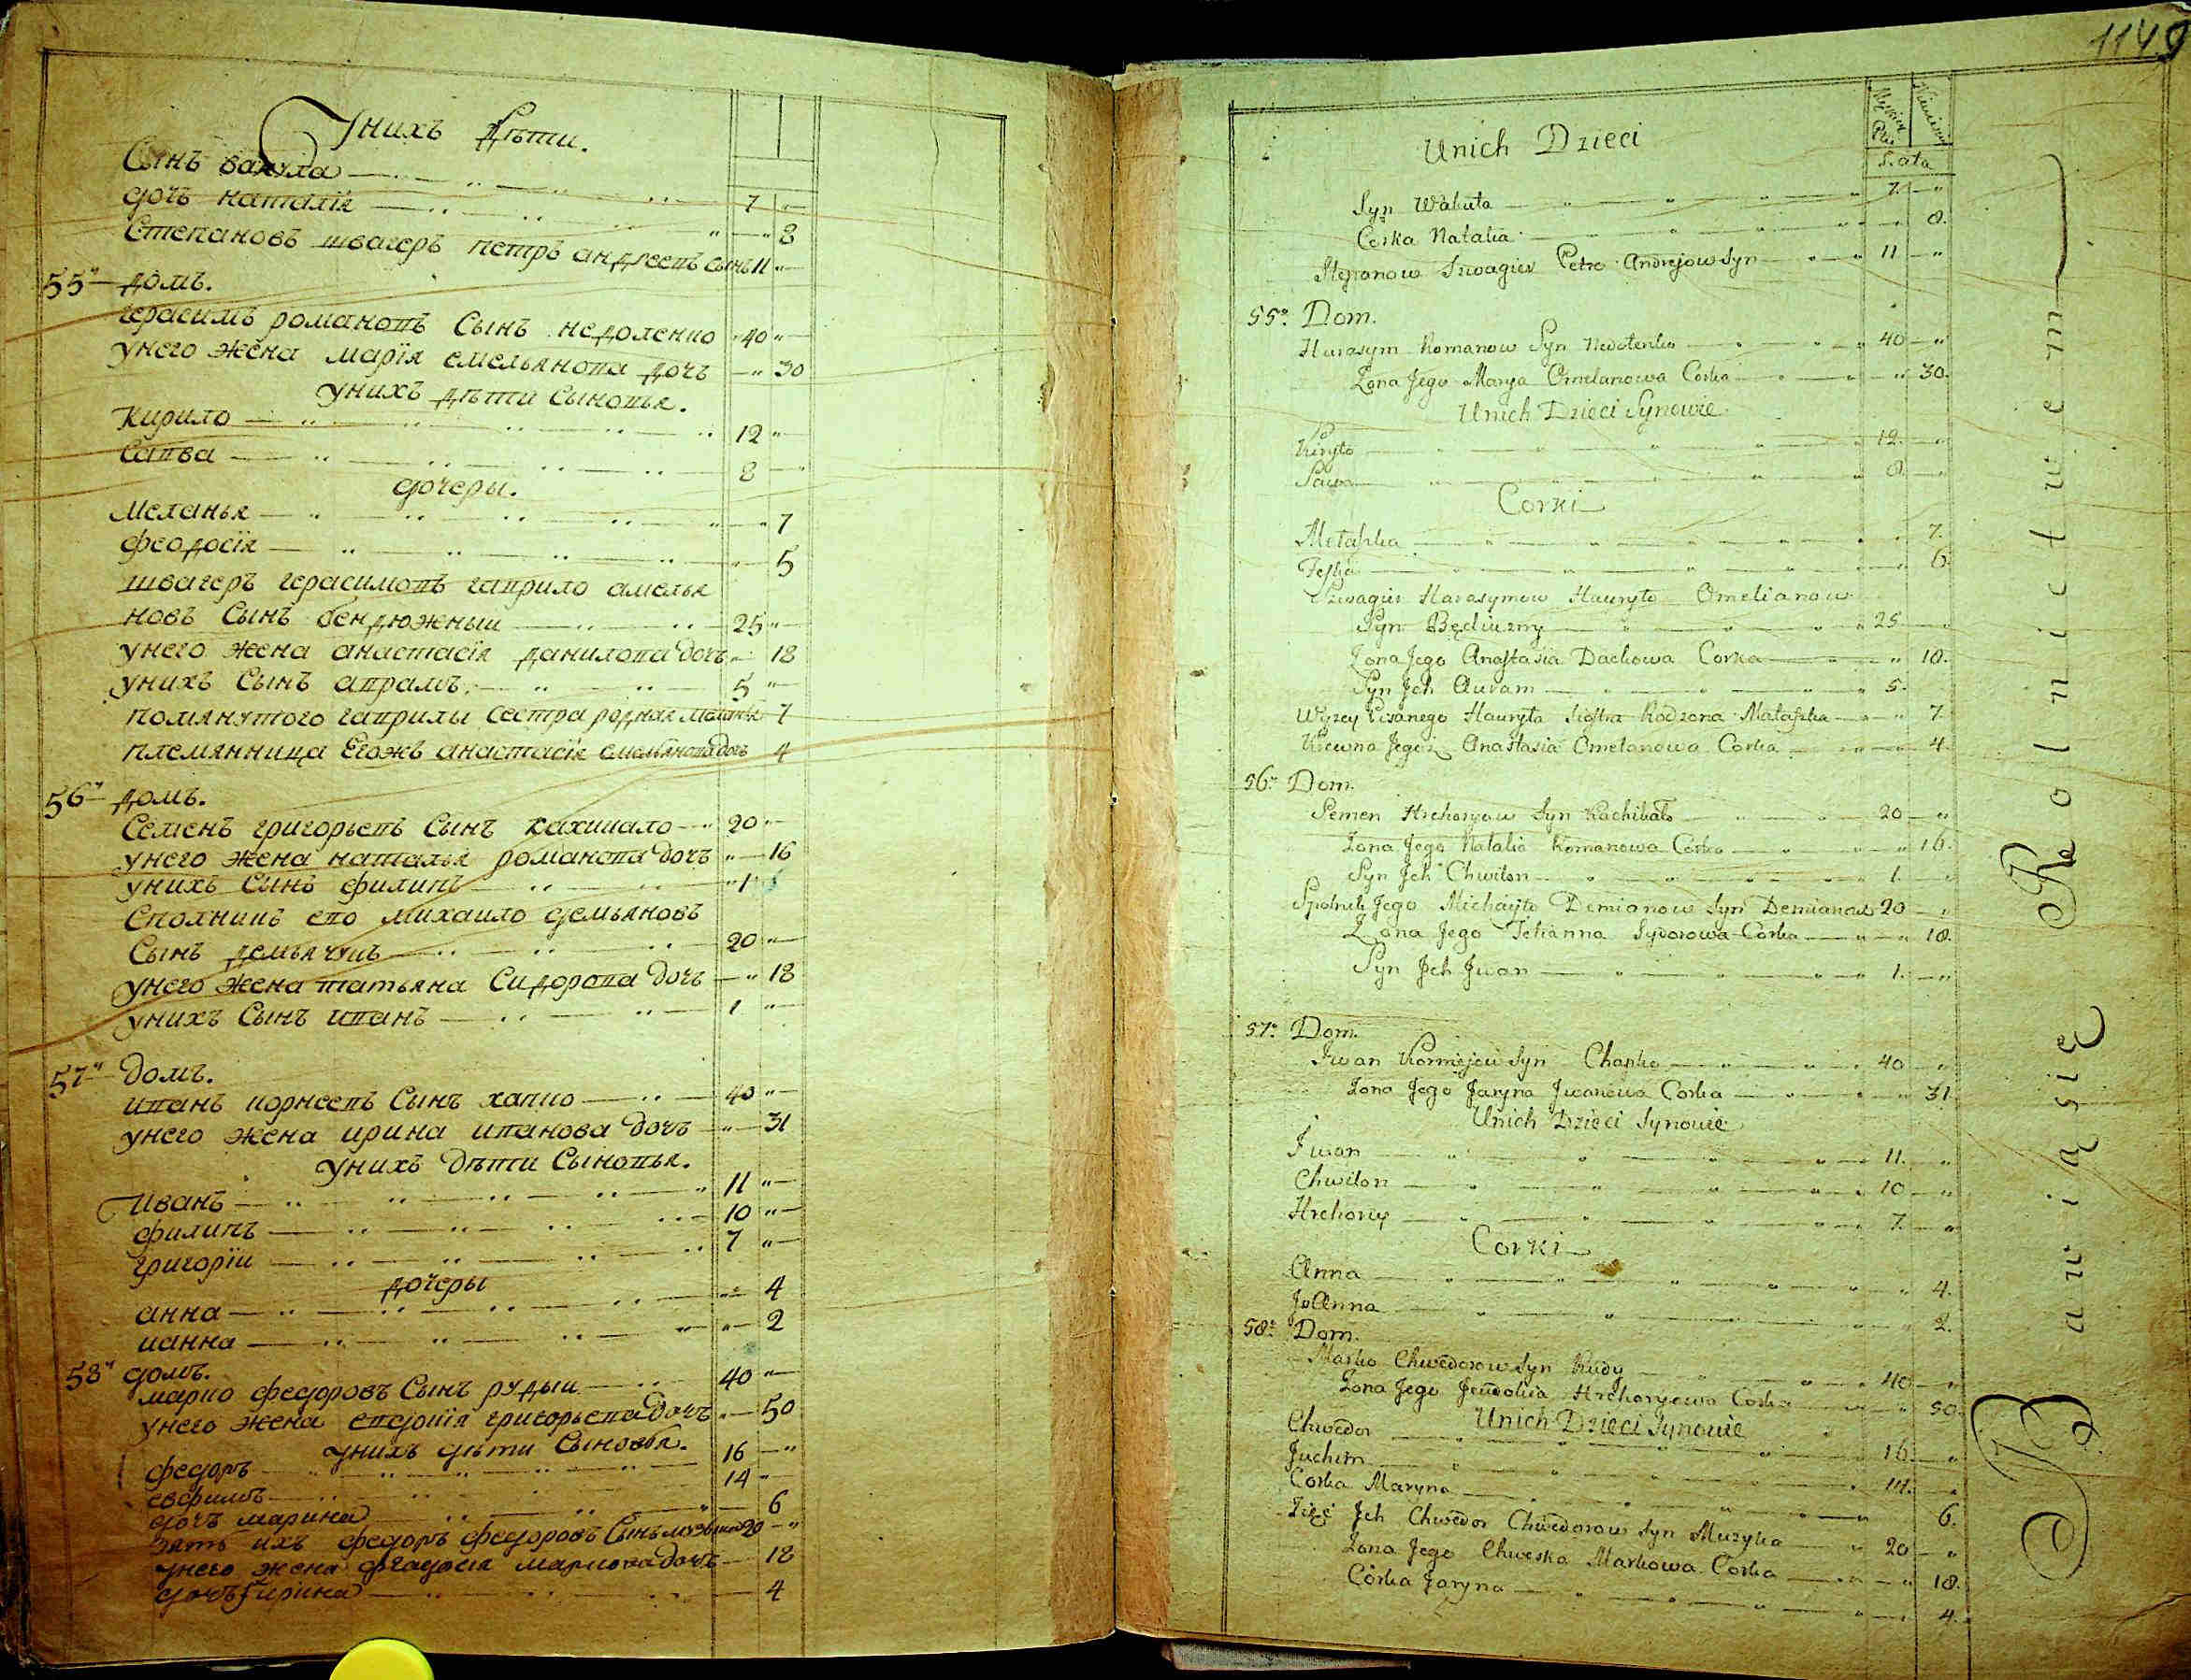 Унихъ Дѣти.
Сынъ вакула — 7 —
дочъ наталія — 8
Степановъ швагеръ петръ андреевъ сынъ 11 —
55й домъ.
герасимъ романовъ Сынъ недоленко 40 —
унего жена марія емельянова дочъ — 30
унихъ дѣти Сыновья.
Кирило — 12 —
Савва — 8 —
дочеры.
Меланья — 7
феодосія — 5
швагеръ герасимовъ гаврило амелья
новъ Сынъ бендюжный — 25 —
унего жена анастасія данилова дочъ — 18
унихъ Сынъ аврамъ — 5 —
помянутого гаврилы сестра родная 7
племянница Егожъ анастасія емельянова дочъ 4
56й домъ.
Семенъ григорьевъ Сынъ кахикало — 20 —
унего жена наталья романова дочъ — 16
унихъ Сынъ филипъ — 1
Сполникъ его михайло демьяновъ
Сынъ демьячукъ — 20 —
унего жена татьяна Сидорова дочъ — 18
унихъ Сынъ иванъ — 1 —
57й домъ.
иванъ корнеевъ Сынъ хапко — 40 —
унего жена ирина иванова дочъ — 31
унихъ дѣти Сыновья.
Иванъ — 11 —
филипъ — 10 —
григорій — 7 —
дочеры
анна — 4
ианна — 2
58й домъ.
марко федоровъ Сынъ рудый — 40 —
унего жена евдокія григорьева дочъ — 50
унихъ дѣти Сыновья.
федоръ — 16 —
евфимъ — 14 —
дочъ марина — 6
зять ихъ федоръ федоровъ Сынъ музыка 20 —
унего жена феадосія маркова дочъ — 18
дочъ ирина — 4
1149
Męzkiey Płci Niewieściey
Lata
Unich Dzieci
Syn Wakuła — 7. —
Corka Natalia — 8.
Stepanow Szwagier Petro Andrejow Syn — 11 —
55. Dom.
Harasym Romanow Syn Nedolenko — 40 —
Zona Jego Marya Omelanowa Corka — 30.
Unich Dzieci Synowie
Kiryło — 12. —
Sawa — 8. —
Corki
Metaszka — 7.
Feska — 6.
Szwagier Harasymow Hawryło Omelianow
Syn Będiuzny — 25 —
Zona Jego Anastasia Dackowa Corka — 18.
Syn Jch Auram — 5.
Wyzey Pisanego Hauryła Siostra Rodzona Mataszka — 7.
Krewna Jegoz Anastasia Omelanowa Corka — 4.
56. Dom.
Semen Hrehoryow Syn Kachikało — 20 —
Zona Jego Natalia Romanowa Corka — 16.
Syn Jch Chwilon — 1. —
Spolnik Jego Michayło Demianow Syn Demianczuk 20 —
Zona Jego Tetianna Sydorowa Corka — 18.
Syn Jch Jwan — 1. —
57. Dom.
Jwan Kornijow Syn Chapko — 40 —
Zona Jego Jaryna Jwanowa Corka — 31.
Unich Dzieci Synowie
Jwan — 11. —
Chwilon — 10 —
Hrehory — 7. —
Corki
Anna — 4.
JoAnna — 2.
58. Dom.
Marko Chwedorow Syn Rudy — 40 —
Zona Jego Jewdokia Hrehoryowa Corka — 50.
Unich Dzieci Synowie
Chwedor — 16. —
Juchim — 14. —
Corka Maryna — 6.
Zięć Jch Chwedor Chwedorow Syn Muzyka 20 —
Zona Jego Chweska Markowa Corka — 18.
Corka Jaryna — 4.
Bawią się Rolnictwem